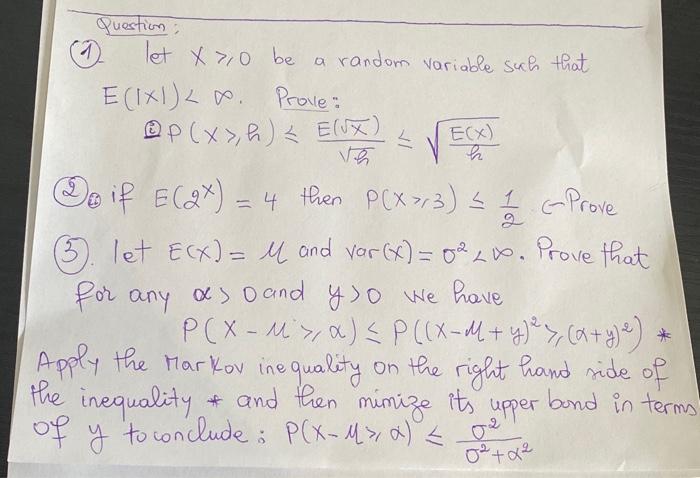 Question:
① let X ⩾ 0 be a random variable such that
E(|X|) < ∞. Prove:
ⓘ P(X ⩾ h) ≤ E(√X)/√h ≤ √(E(X)/h)
② ⓘⓘ if E(2^X) = 4 then P(X ⩾ 3) ≤ 1/2. ← Prove
⑤. let E(X) = M and var(X) = σ² < ∞. Prove that
for any α > 0 and y > 0 we have
P(X - M ⩾ α) ≤ P((X-M+y)² ⩾ (α+y)²) *
Apply the Markov inequality on the right hand side of
the inequality * and then mimize its upper bond in terms
of y to conclude: P(X-M ⩾ α) ≤ σ²/(σ²+α²)